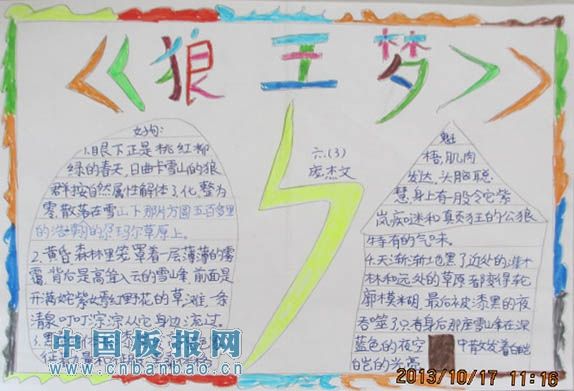 《《狼王梦》》
好句:
1.眼下正是桃红柳
绿的春天,日曲卡雪山的狼
群按自然属性解体了,化整为
零,散落在雪山下那片方圆五百多里
的浩瀚的尕玛尔草原上。
2.黄昏,森林里笼罩着一层薄薄的雾
霭,背后是高耸入云的雪山峰,前面是
开满姹紫嫣红野花的草滩,一条
清泉叮叮淙淙从它身边流过
六.(3)
杰文
魁
梧,肌肉
发达,头脑聪
慧,身上有一股令它紫
岚痴迷和真页狂的公狼
特有的气味。
4.天渐渐地黑了,近处的灌木
林和远处的草原都变得轮
廓模糊,最后被漆黑的夜
吞噬了,只有身后那座雪峰在深
蓝色的夜空中散发着白皑
皑的光亮
中国板报网
cnbanbao.cn
2013/10/17 11:16